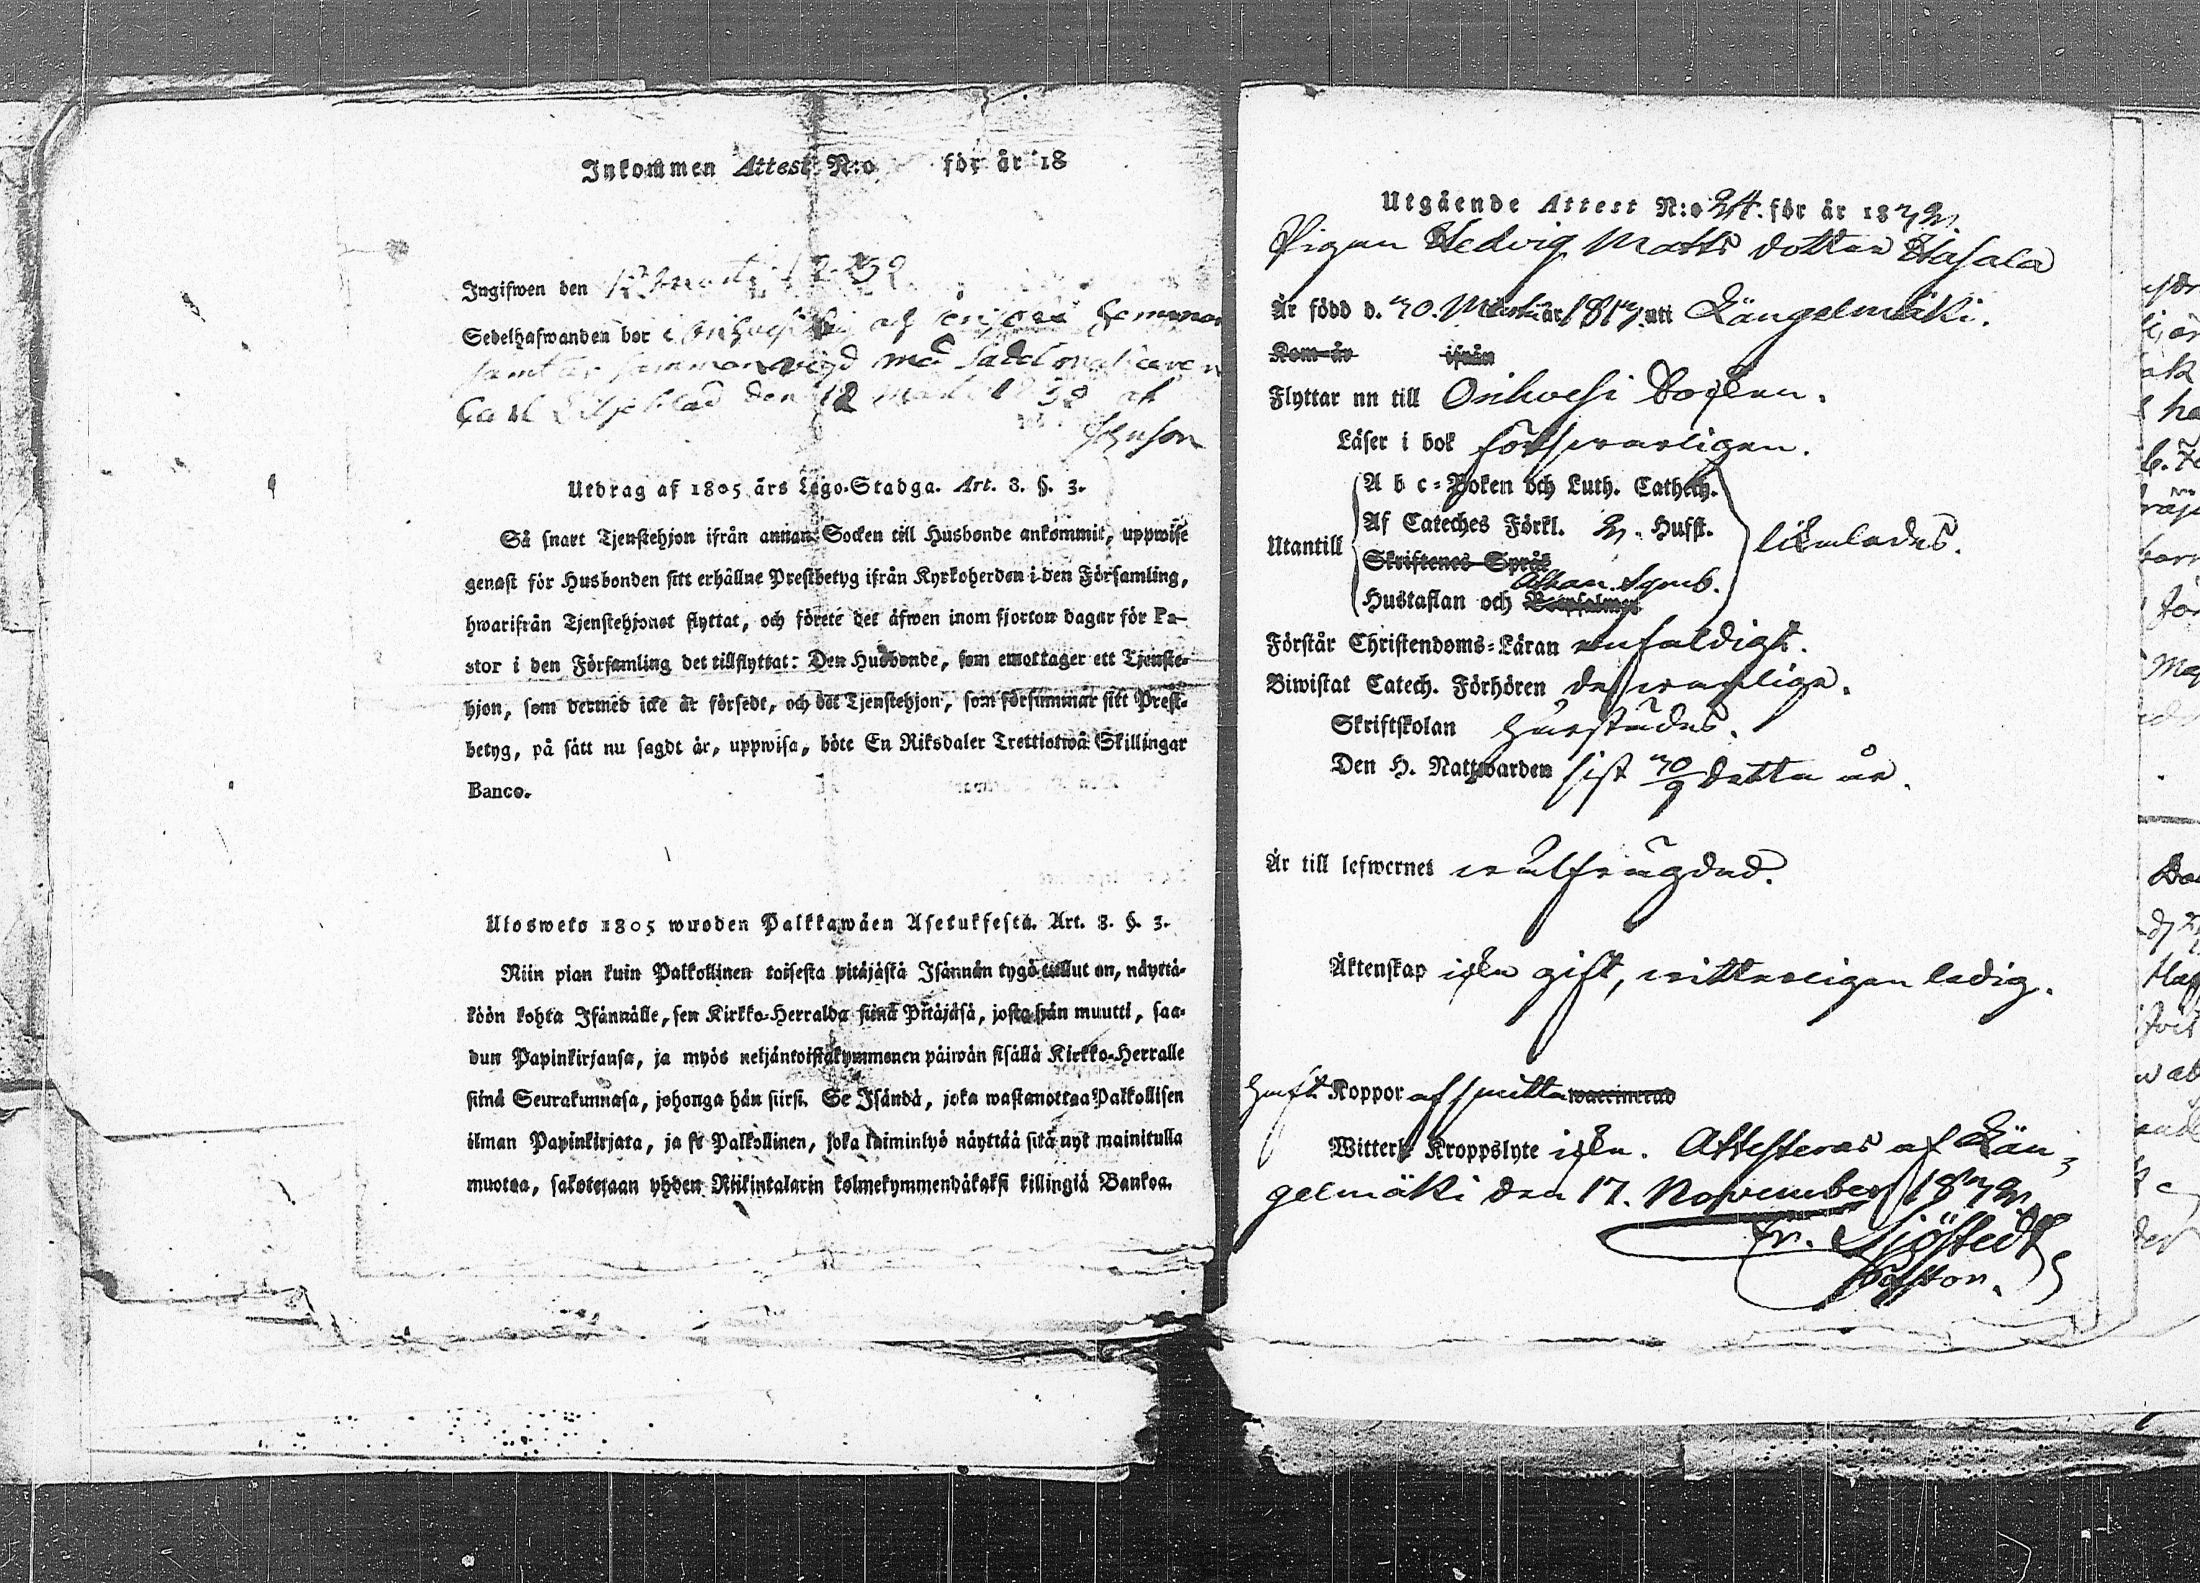 Inkommen Attest N:o för år 18
Ingifwen den
Sedelhafwanden bor i och
samt är sammanvigd med Sadelmakaren
Carl Liljeblad den 12 1838 af
Utdrag af 1805 års Lego-Stadga. Art. 8. §. 3.
Så snart Tjenstehjon ifrån annan Socken till Husbonde ankommit, uppwise
genast för Husbonden sitt erhållne Prestbetyg ifrån Kyrkoherden i den Församling,
hwarifrån Tjenstehjonet flyttat, och förete det äfwen inom fjorton dagar för Pa-
stor i den Församling det tillflyttat: Den Husbonde, som emottager ett Tjenste-
hjon, som dermed icke är försedt, och det Tjenstehjon, som försummar sitt Prest-
betyg, på sätt nu sagdt är, uppwisa, böte En Riksdaler Trettiotwå Skillingar
Banco.
Ulosweto 1805 wuoden Palkkawäen Asetuksesta. Art. 8. §. 3.
Niin pian kuin Palkollinen toisesta pitäjästä Isännän tygö tullut on, näyttä-
köön kohta Isännälle, sen Kirkko-Herralda siinä Pitäjäsä, josta hän muutti, saa-
dun Papinkirjansa, ja myös neljäntoistakymmenen päiwän sisällä Kirkko-Herralle
siinä Seurakunnasa, johonga hän siirsi. Se Isändä, joka wastanottaa Palkollisen
ilman Papinkirjata, ja se Palkollinen, joka laiminlyö näyttää sitä nyt mainitulla
muotoa, sakotetaan yhden Riikintalarin kolmekymmendäkaksi killingiä Bankoa.
Utgående Attest N:o 24. för år 1832.
Pigan Hedvig Matts dotter Hasala
Är född d. 30. Martii år 1813. uti Längelmäki.
Kom år ifrån
Flyttar nu till Orihvesi Socken.
Läser i bok försvarligen.
A b c-Boken och Luth. Catech.
Af Cateches Förkl. 2. Husst.
Utantill likaledes.
Skriftenes Språk
Athan. Symb.
Hustaflan och Botpsalmer
Förstår Christendoms-Läran enfaldigt.
Biwistat Catech. Förhören de vanliga.
Skriftskolan
Den H. Nattwarden sist 30/9 detta år.
Är till lefwernet välfrägdad.
Äktenskap icke gift, vitterligen ledig.
Haft Koppor af smitta waccinerad
Witterl. Kroppslyte icke. Attesteras af Län-
gelmäki den 17. November 1832.
Fr. Sjöstedt
Pastor.